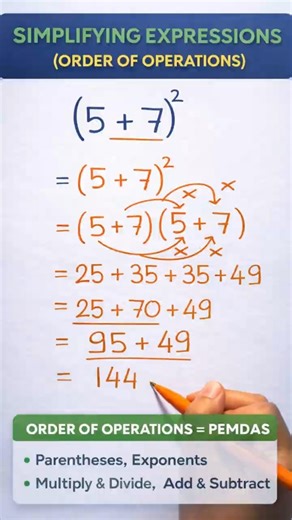 SIMPLIFYING EXPRESSIONS
(ORDER OF OPERATIONS)
(5 + 7)²
= (5 + 7)²
= (5 + 7)(5 + 7)
x
x
x x
= 25 + 35 + 35 + 49
= 25 + 70 + 49
= 95 + 49
= 144
ORDER OF OPERATIONS = PEMDAS
• Parentheses, Exponents
• Multiply & Divide, Add & Subtract